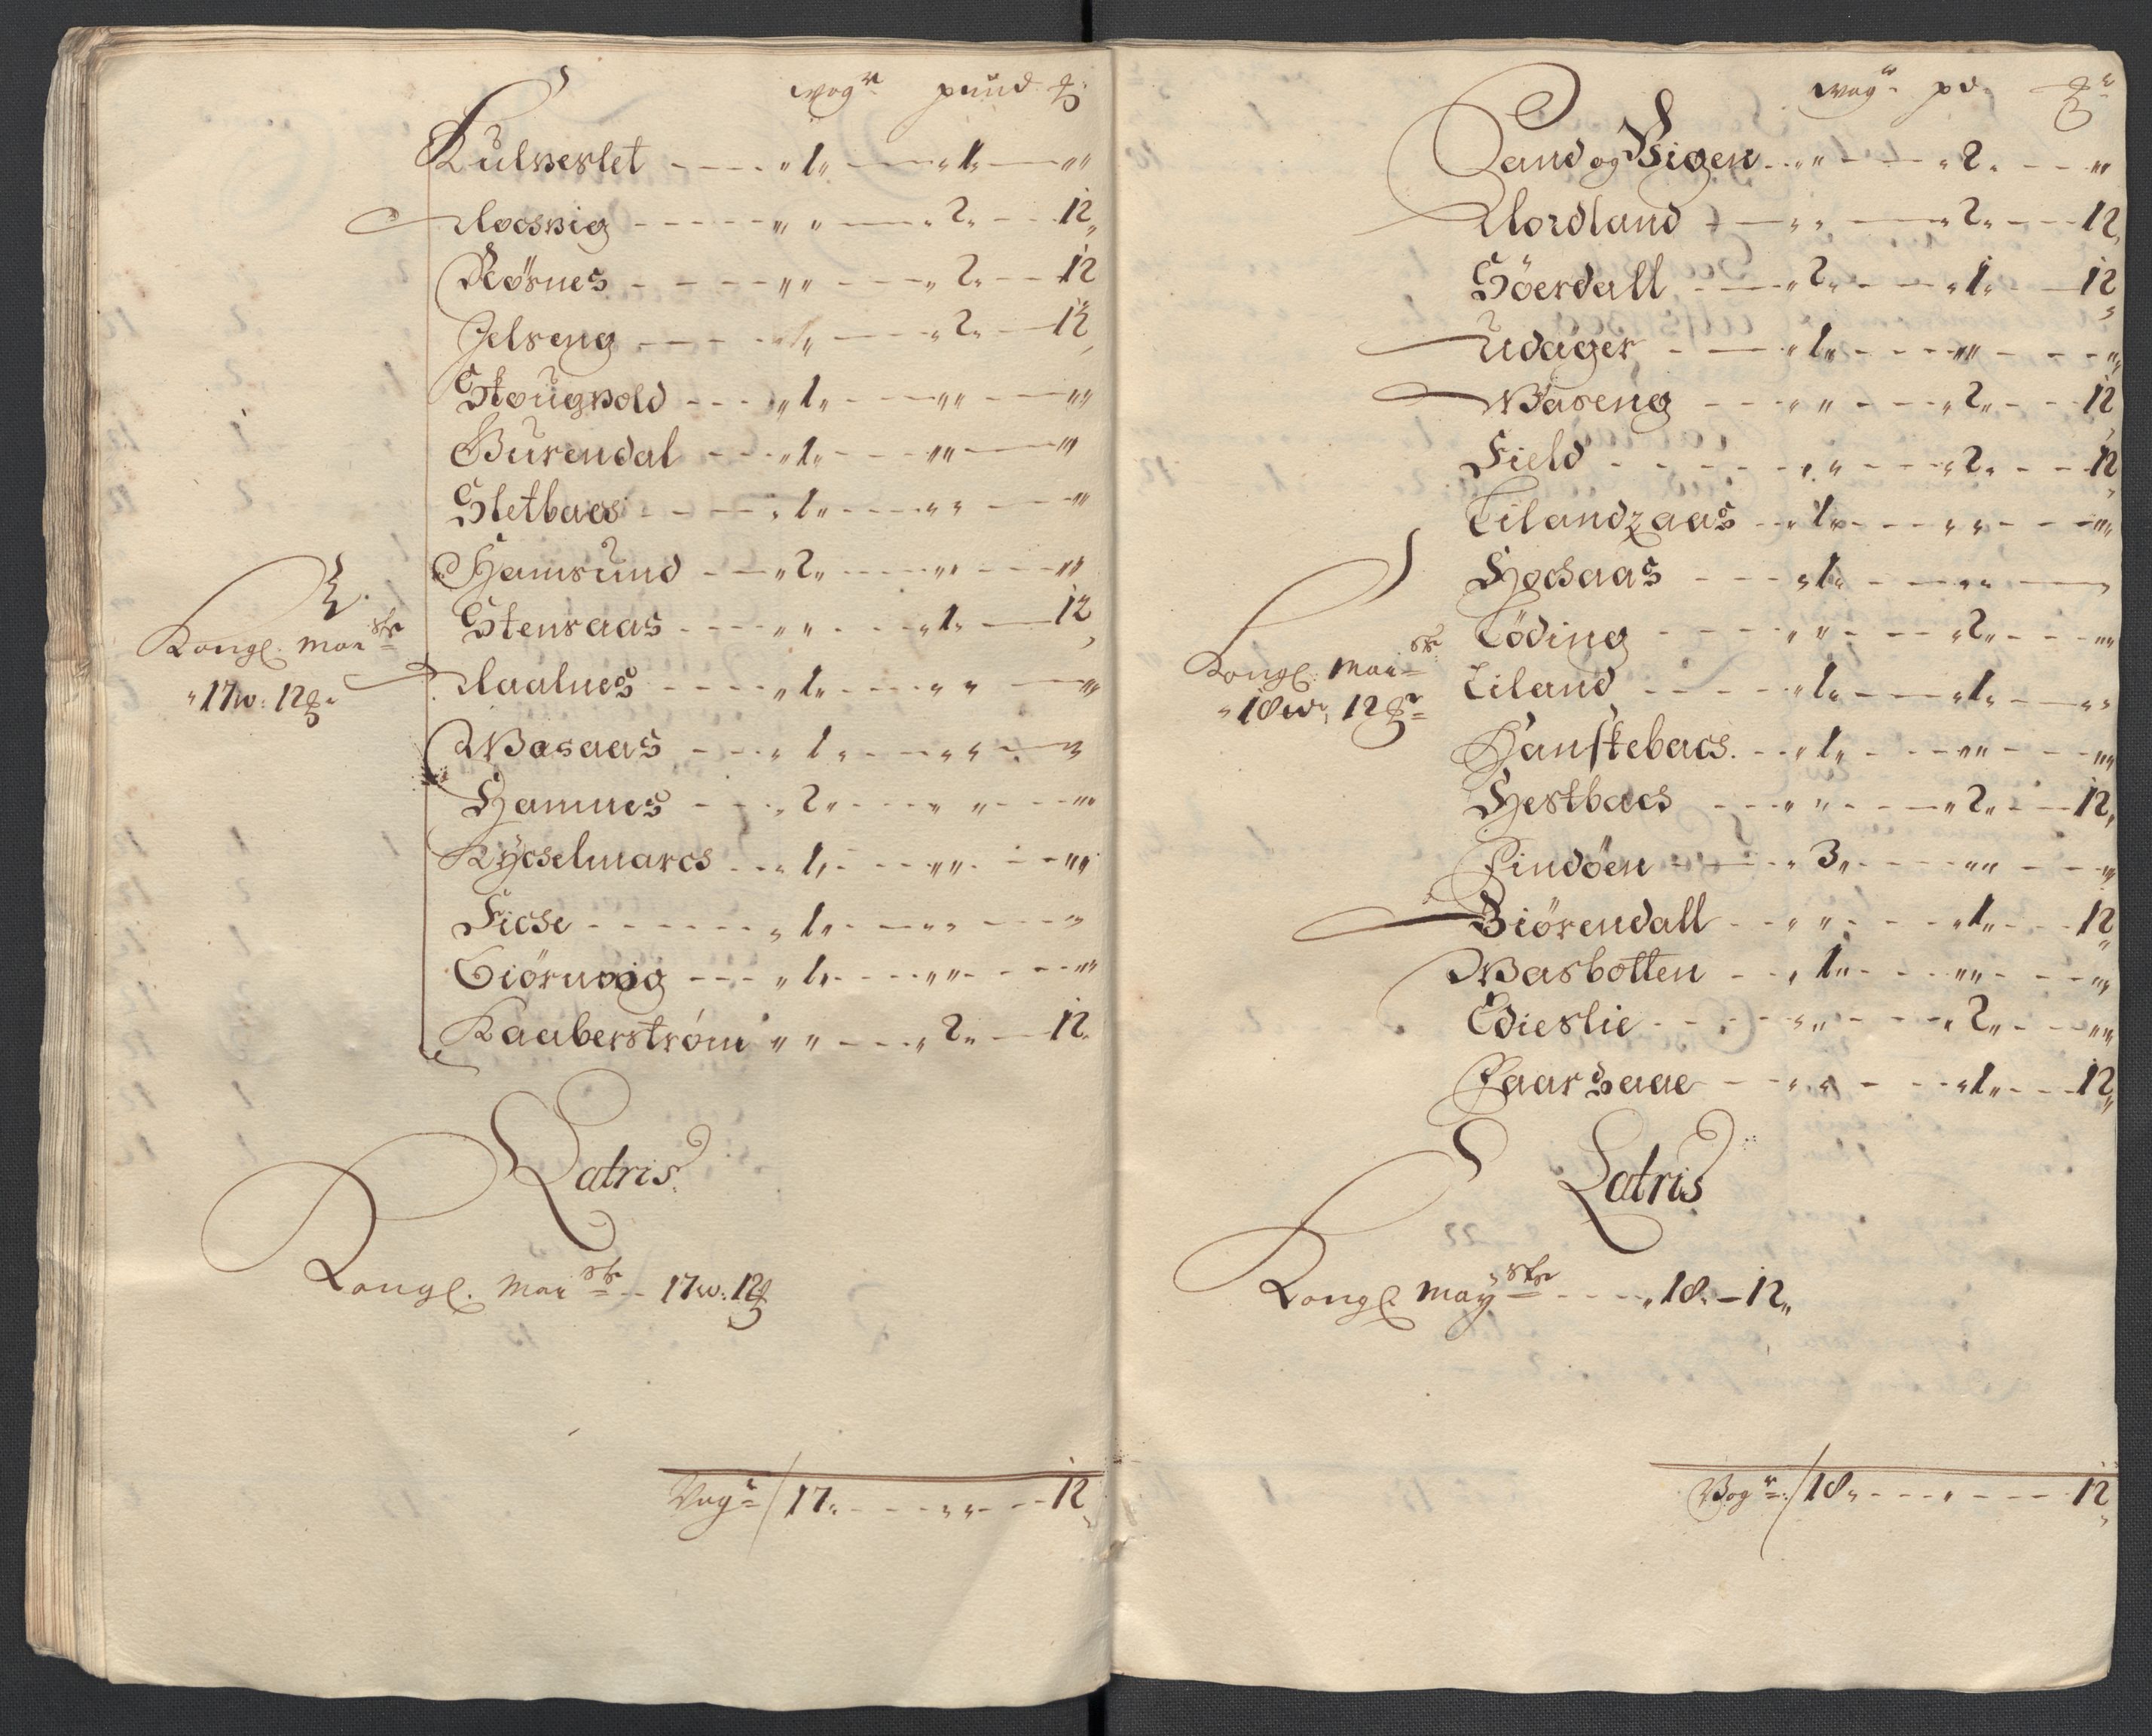 wogr pund ℔
Kulverlet - - - - „ 1„ - - - „1„ - - - „„
Nocsvig - - - - - „ „ - - - „2„ - - 12„
Rörnes - - - - - „„ - - - - „ 2„ - - 12
Jelseng - - - - „1„ - - - - „2„ - - 12„
Skougvold - - - „1„ - - - - „„ - - - „„
Burendal - - - „1„ - - - - „„ - - - „„
Sletbacs - - - - „ 1„ - - - - „„ - - - „
Hamsund - - - „2„ - - - - „„ - - - „„
Stensaas - - - - „ „ - - - - „1„ - - 12„
Naalnes - - - - „1„ - - - - „ „ - - - „
Wasaas - - - „ 1„ - - - - „„ - - - „
Hamnes - - - „2„ - - - „ „ - - - „„
Kycselmarcs - - „1„ - - - - „„ - - - „„
Ficse - - - - - - „1„ - - - - „„ - - - „
Giörnvig - - - „1„ - - - - „„ - - - „„
Kaaberström „ „ - - - „2„ - - 12„
Kongl. Maiˢᵗˢ
„17w: 12℔
Latris
Kongl. Maiˢᵗˢ - - 17w: 12℔
Vogr / 17„ - - - - „„ - - - 12„
wogr pd. ℔r
Sand og Vigen - - „„ - - - - „2„ - - - „„
Nordland - - - „„ - - - - „2„ - - - 12„
Söerdall - - - „2„ - - - - „1„ - - - 12„
Udager - - - „1„ - - - - „„ - - - „„
Waseng - - - „ „ - - - - „2„ - - - 12„
Field - - - - - „„ - - - - „2„ - - - 12„
Eilandzaas - - „1„ - - - - „ „ - - - „„
Hocsaas - - - „1„ - - - - „„ - - - „
Töding - - - - „„ - - - - „2„ - - - „„
Eiland - - - - „1„ - - - - „1„ - - - „„
Hanskebacs - - „1„ - - - - „„ - - - „„
Hestbacs - - - „„ - - - - „2„ - - - 12„
Findöen - - - „3„ - - - - „„ - - - „
Biörendall - - „„ - - - - „1„ - - - 12„
Wasbotten - - „1„ - - - - „„ - - - „
Edieslie - - - - „„ - - - - „2„ - - - „„
Kongl. Maiˢᵗˢ
„18w; 12℔
Latris
Kongl Mayˢᵗˢ - - - - „18„ - 12„
Wogr: / 18„ - - - - „ - - - 12„